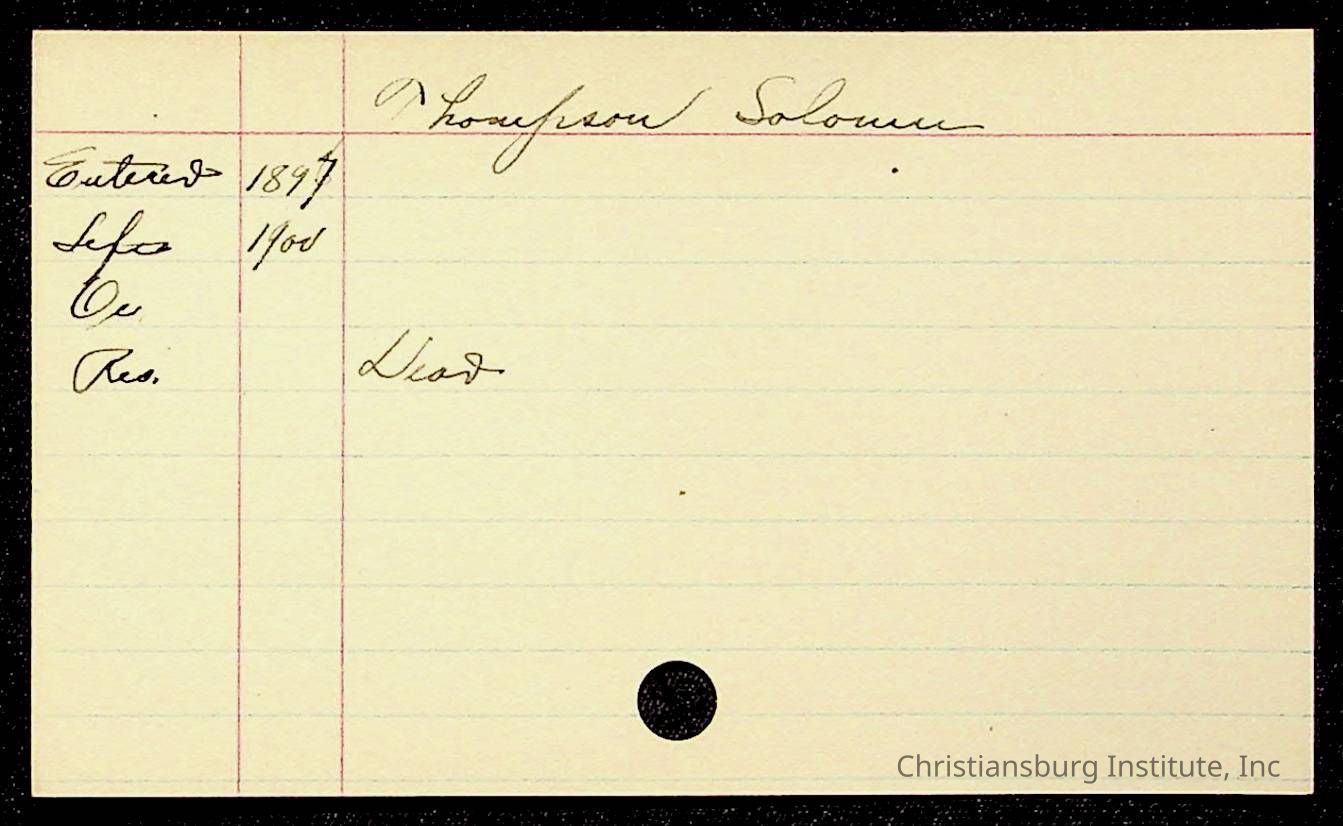 Thompson Solomon
Entered 1897
Left 1900
Oc
Res. Dead
Christiansburg Institute, Inc